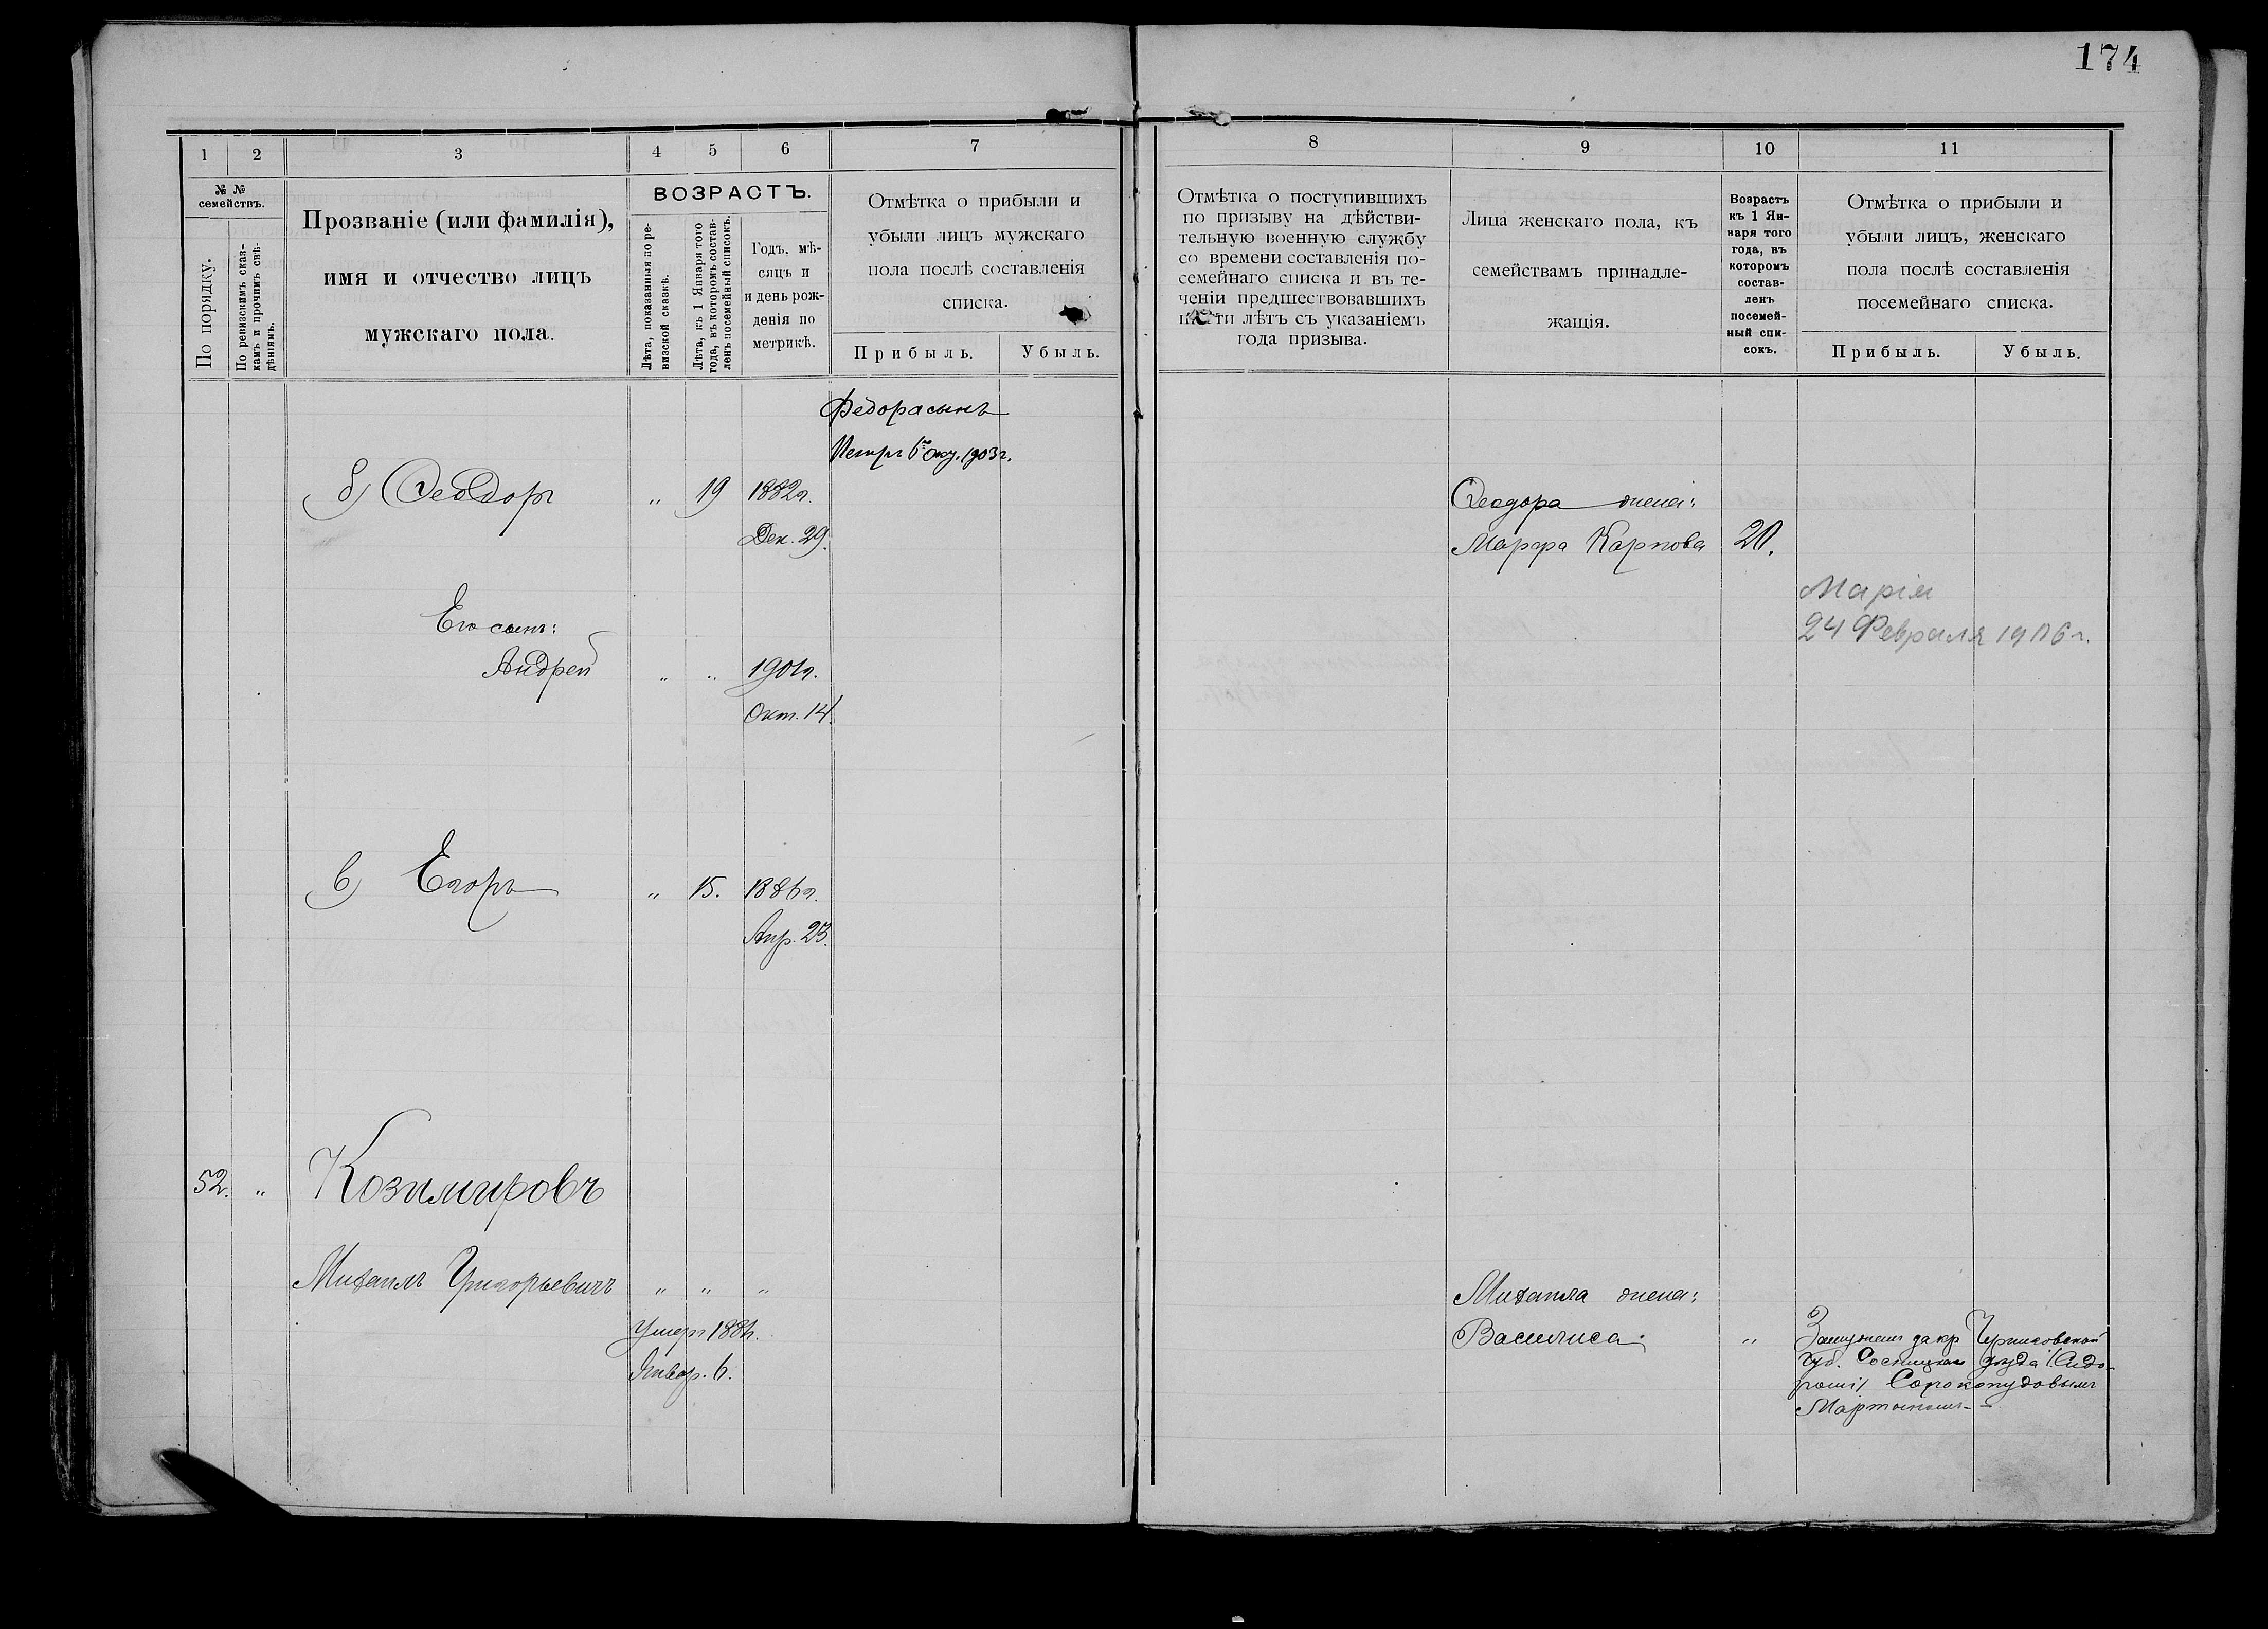 174
1 2 3 4 5 6 7
№ №
семействъ.
По порядку.
По ревизскимъ сказ-
камъ и прочимъ свѣ-
дѣніямъ.
Прозваніе (или фамилія),
имя и отчество лицъ
мужскаго пола.
ВОЗРАСТЪ.
Лѣта, показанныя по ре-
визской сказкѣ.
Лѣта, къ 1 Января того
года, въ которомъ состав-
ленъ посемейный списокъ.
Годъ, мѣ-
сяцъ и
и день рож-
денія по
метрикѣ.
Отмѣтка о прибыли и
убыли лицъ мужскаго
пола послѣ составленія
списка.
Прибыль. Убыль.
Федора сынъ
Петръ 6 Окт. 1903 г.
б) Ѳеодоръ „ 19 1882 г.
Дек. 29.
Его сынъ:
Андрей „ „ 1901 г.
Окт. 14.
в) Егоръ „ 15. 1886 г.
Апр. 23.
52. „ Козимировъ
Михаилъ Григорьевичъ „ „ „
Умеръ 188
Январ. 6.
8 9 10 11
Отмѣтка о поступившихъ
по призыву на дѣйстви-
тельную военную службу
со времени составленія по-
семейнаго списка и въ те-
ченіи предшествовавшихъ
шести лѣтъ съ указаніемъ
года призыва.
Лица женскаго пола, къ
семействамъ принадле-
жащія.
Возрастъ
къ 1 Ян-
варя того
года, въ
которомъ
состав-
ленъ
посемей-
ный спи-
сокъ.
Отмѣтка о прибыли и
убыли лицъ, женскаго
пола послѣ составленія
посемейнаго списка.
Прибыль. Убыль.
Ѳеодора жена:
Марфа Карпова 20.
Марія
24 Февраля 1906 г.
Михаила жена:
Василиса „
Замужемъ за кр Черниговской
Губ. Сосницкаго уѣзда
Сорокопудовымъ
Мартыномъ